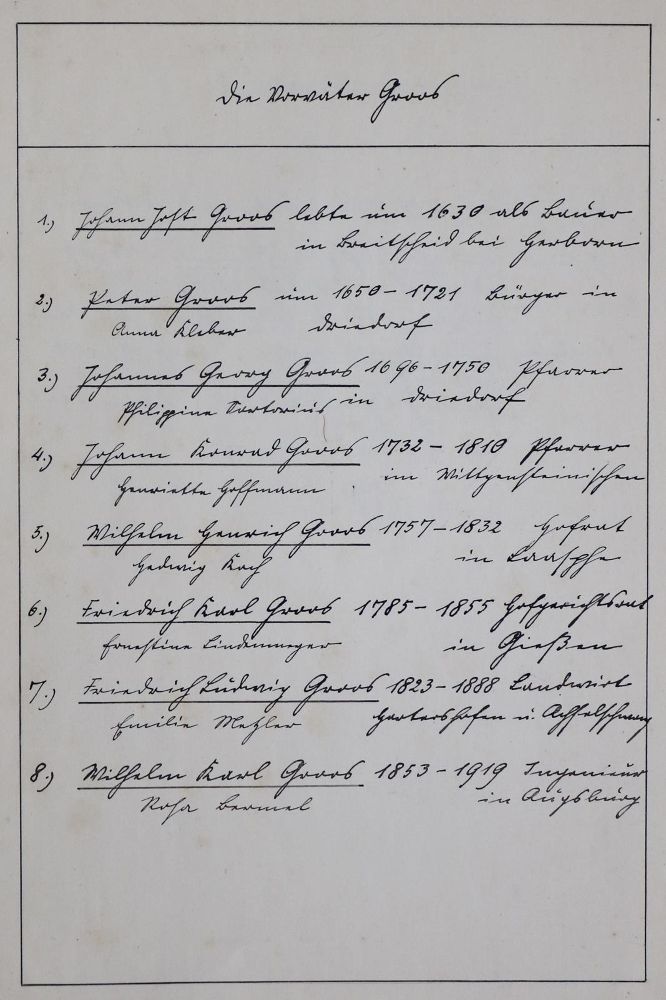 Die Vorväter Groos
1.) Johann Jost Groos lebte um 1630 als Bauer
in Breitscheid bei Herborn
2.) Peter Groos um 1650 - 1721 Bürger in
Anna Kleber Driedorf
3.) Johannes Georg Groos 1696 - 1750 Pfarrer
Philippine Sartorius in Driedorf
4.) Johann Konrad Groos 1732 - 1810 Pfarrer
Henriette Hoffmann im Wittgensteinischen
5.) Wilhelm Henrich Groos 1757 - 1832 Hofrat
Hedwig Koch in Laasphe
6.) Friedrich Karl Groos 1785 - 1855 Hofgerichtsrat
Ernestine Lindenmeyer in Gießen
7.) Friedrich Ludwig Groos 1823 - 1888 Landwirt
Emilie Metzler u. Achselschwang
8.) Wilhelm Karl Groos 1853 - 1919 Ingenieur
Rosa Bermel in Augsburg